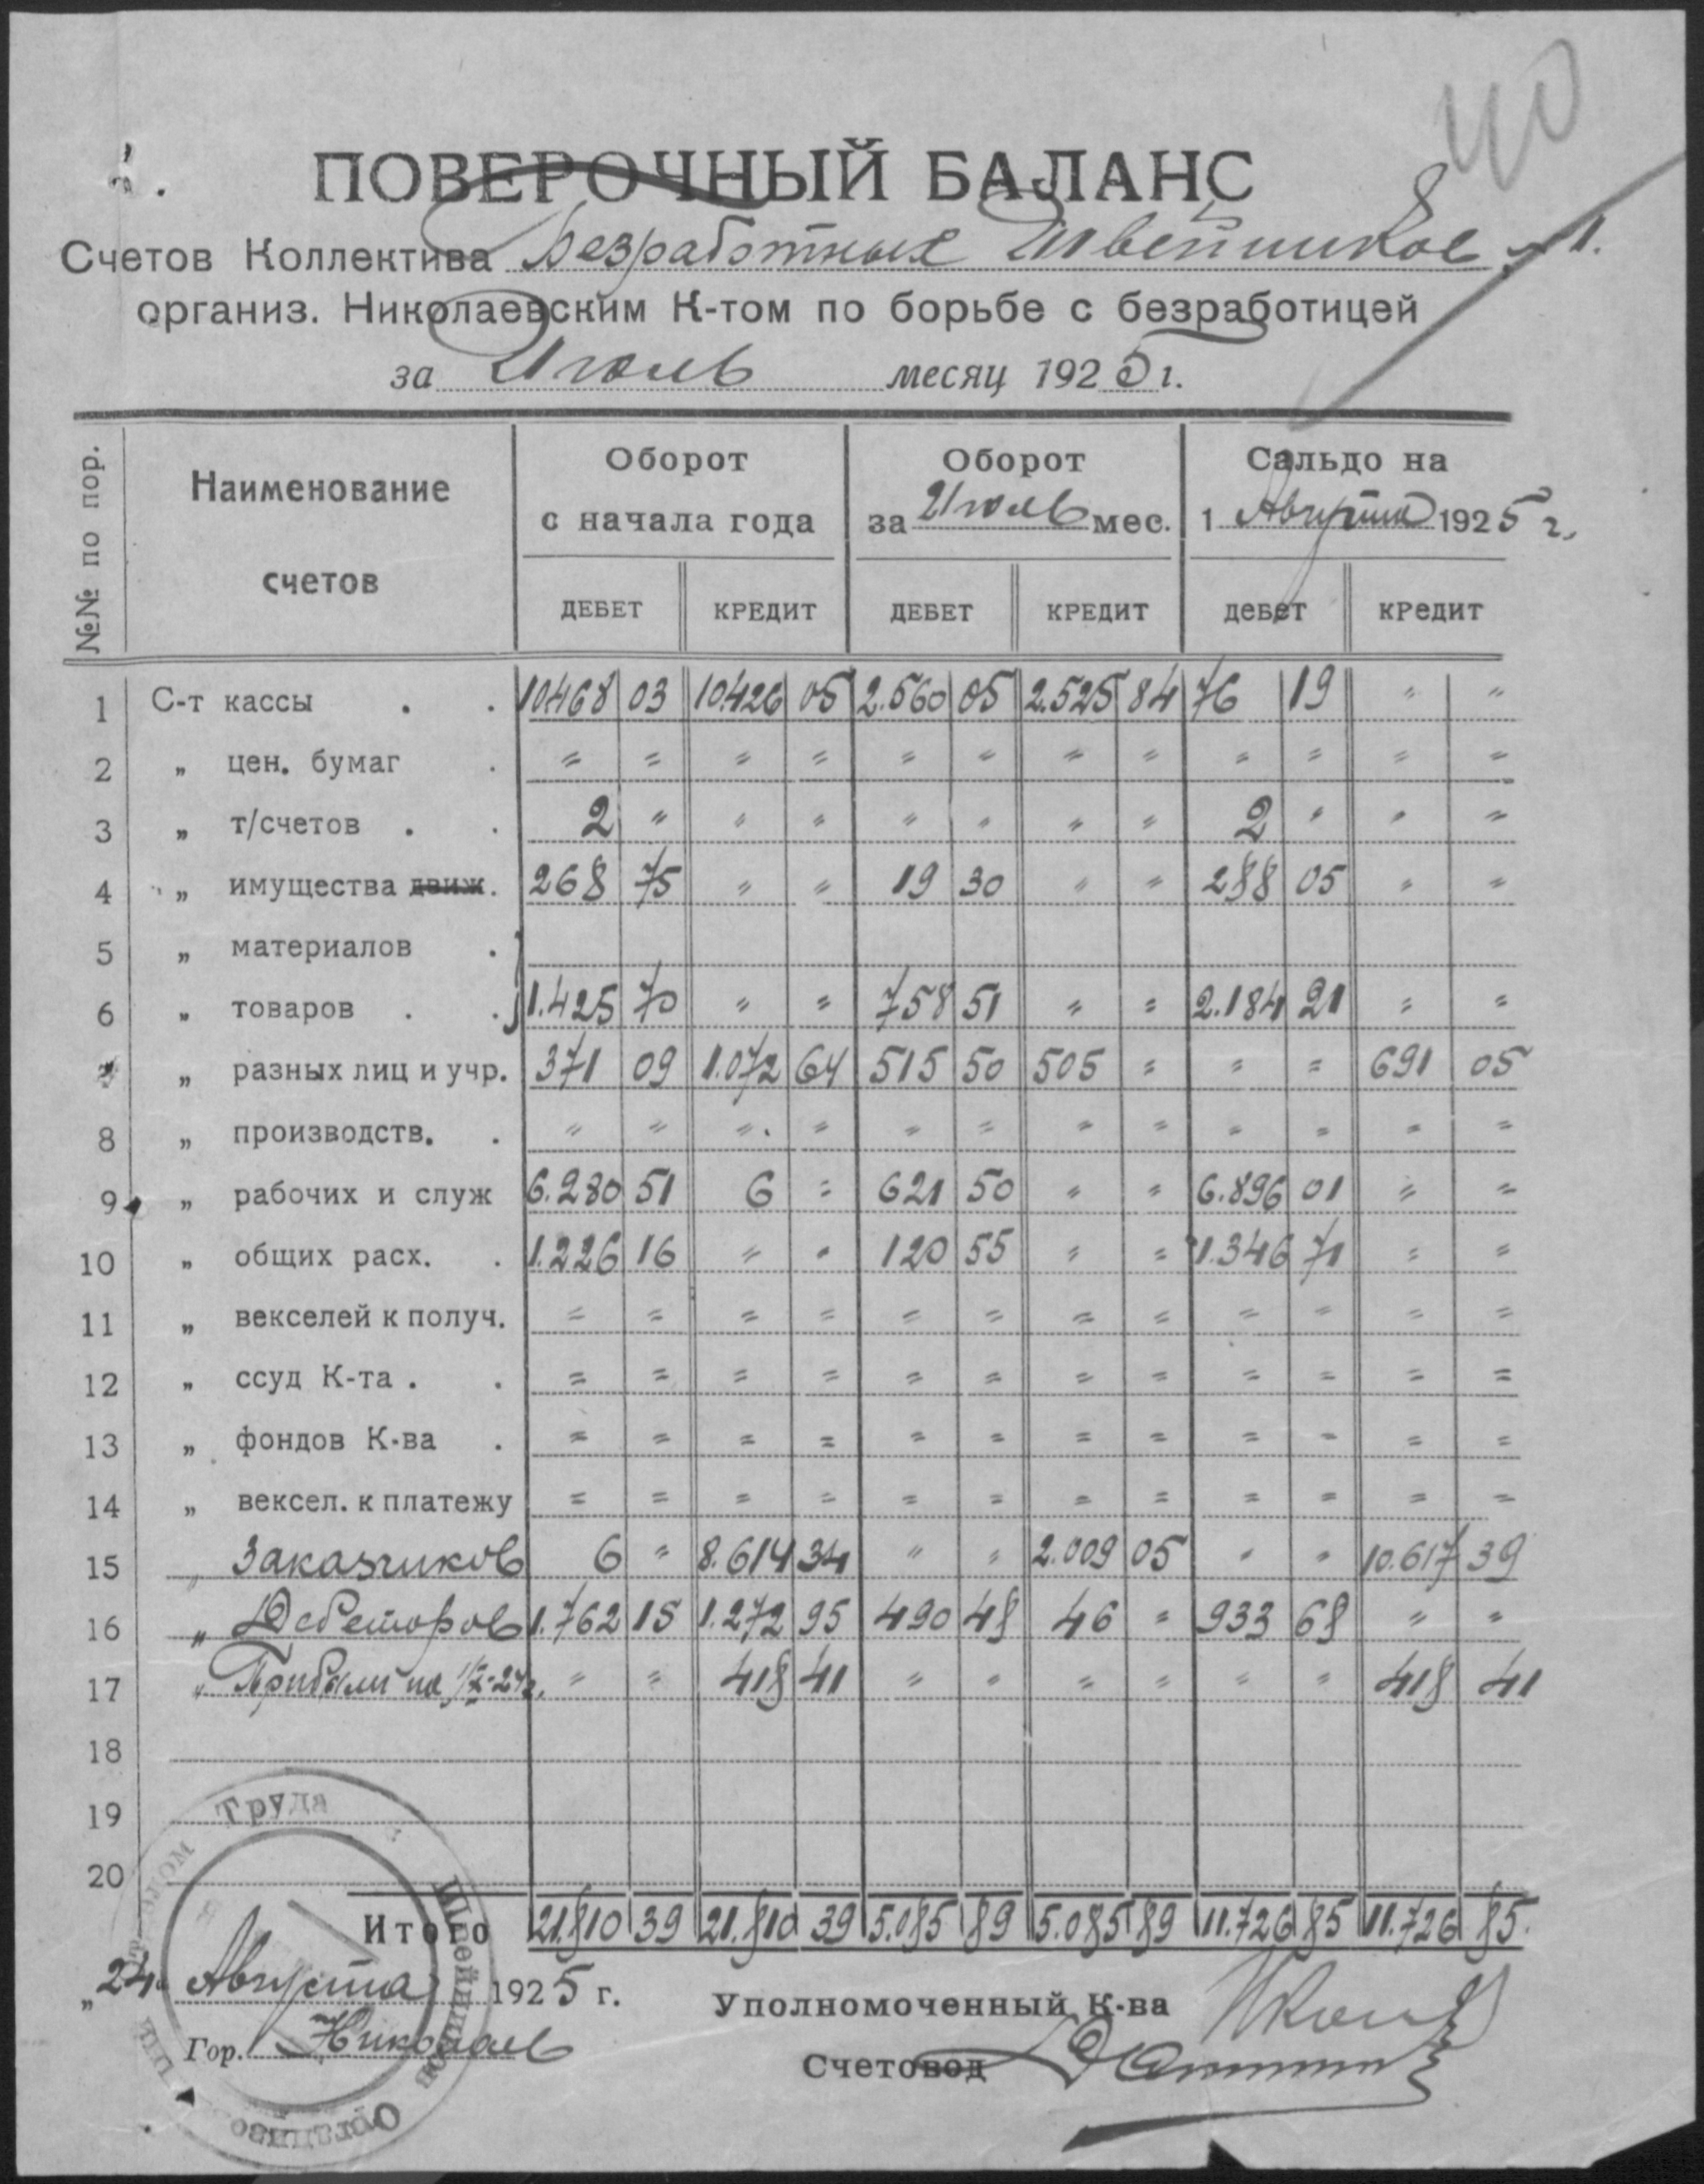 40
ПОВЕРОЧНЫЙ БАЛАНС
Счетов Коллектива Безработных Швейников №1.
организ. Николаевским К-том по борьбе с безработицей
за Июль месяц 1925 г.
№№ по пор. Наименование счетов Оборот с начала года Оборот за Июль мес. Сальдо на 1 Августа 1925 г.
ДЕБЕТ КРЕДИТ ДЕБЕТ КРЕДИТ дебет кредит
1 С-т кассы . . 10468 03 10.426 05 2.560 05 2.525 84 76 19 " "
2 „ цен. бумаг . " " " " " " " " " " " "
3 „ т/счетов . . 2 " " " " " " " 2 " " "
4 „ имущества движ. 268 75 " " 19 30 " " 288 05 " "
5 „ материалов .
6 „ товаров . . 1.425 70 " " 758 51 " " 2.184 21 " "
7 „ разных лиц и учр. 371 09 1.072 64 515 50 505 " " " 691 05
8 „ производств. . " " " " " " " " " " " "
9 „ рабочих и служ 6.280 51 6 " 621 50 " " 6.896 01 " "
10 „ общих расх. . 1.226 16 " " 120 55 " " 1.346 71 " "
11 „ векселей к получ. " " " " " " " " " " " "
12 „ ссуд К-та . . " " " " " " " " " " " "
13 „ фондов К-ва . " " " " " " " " " " " "
14 „ вексел. к платежу " " " " " " " " " " " "
15 „ Заказчиков 6 " 8.614 34 " " 2.009 05 " " 10.617 39
16 „ Дебеторов 1.762 15 1.272 95 490 48 46 " 933 68 " "
17 „ Прибыли на 1/X-24г. " " 418 41 " " " " " " 418 41
18
19
20
Итого 21.810 39 21.810 39 5.085 89 5.085 89 11.726 85 11.726 85.
„24" Августа 1925 г.
Уполномоченный К-ва
Гор. Николаев
Счетовод
Труда
Швейников